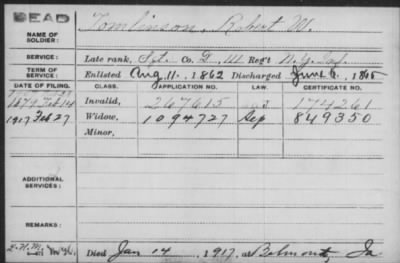 DEAD
NAME OF SOLDIER: Tomlinson, Robert W.
SERVICE: Late rank, Sgt. Co. D, 111 Reg't N.Y. Inf.
TERM OF SERVICE: Enlisted Aug. 11, 1862 Discharged June 6, 1865
DATE OF FILING. CLASS. APPLICATION NO. LAW. CERTIFICATE NO.
1879 Feb 14 Invalid, 267615 174261
1917 Feb 27 Widow, 1094727 Sep 849350
Minor,
ADDITIONAL SERVICES:
REMARKS:
Died Jan 14, 1917, at Belmont, Ia